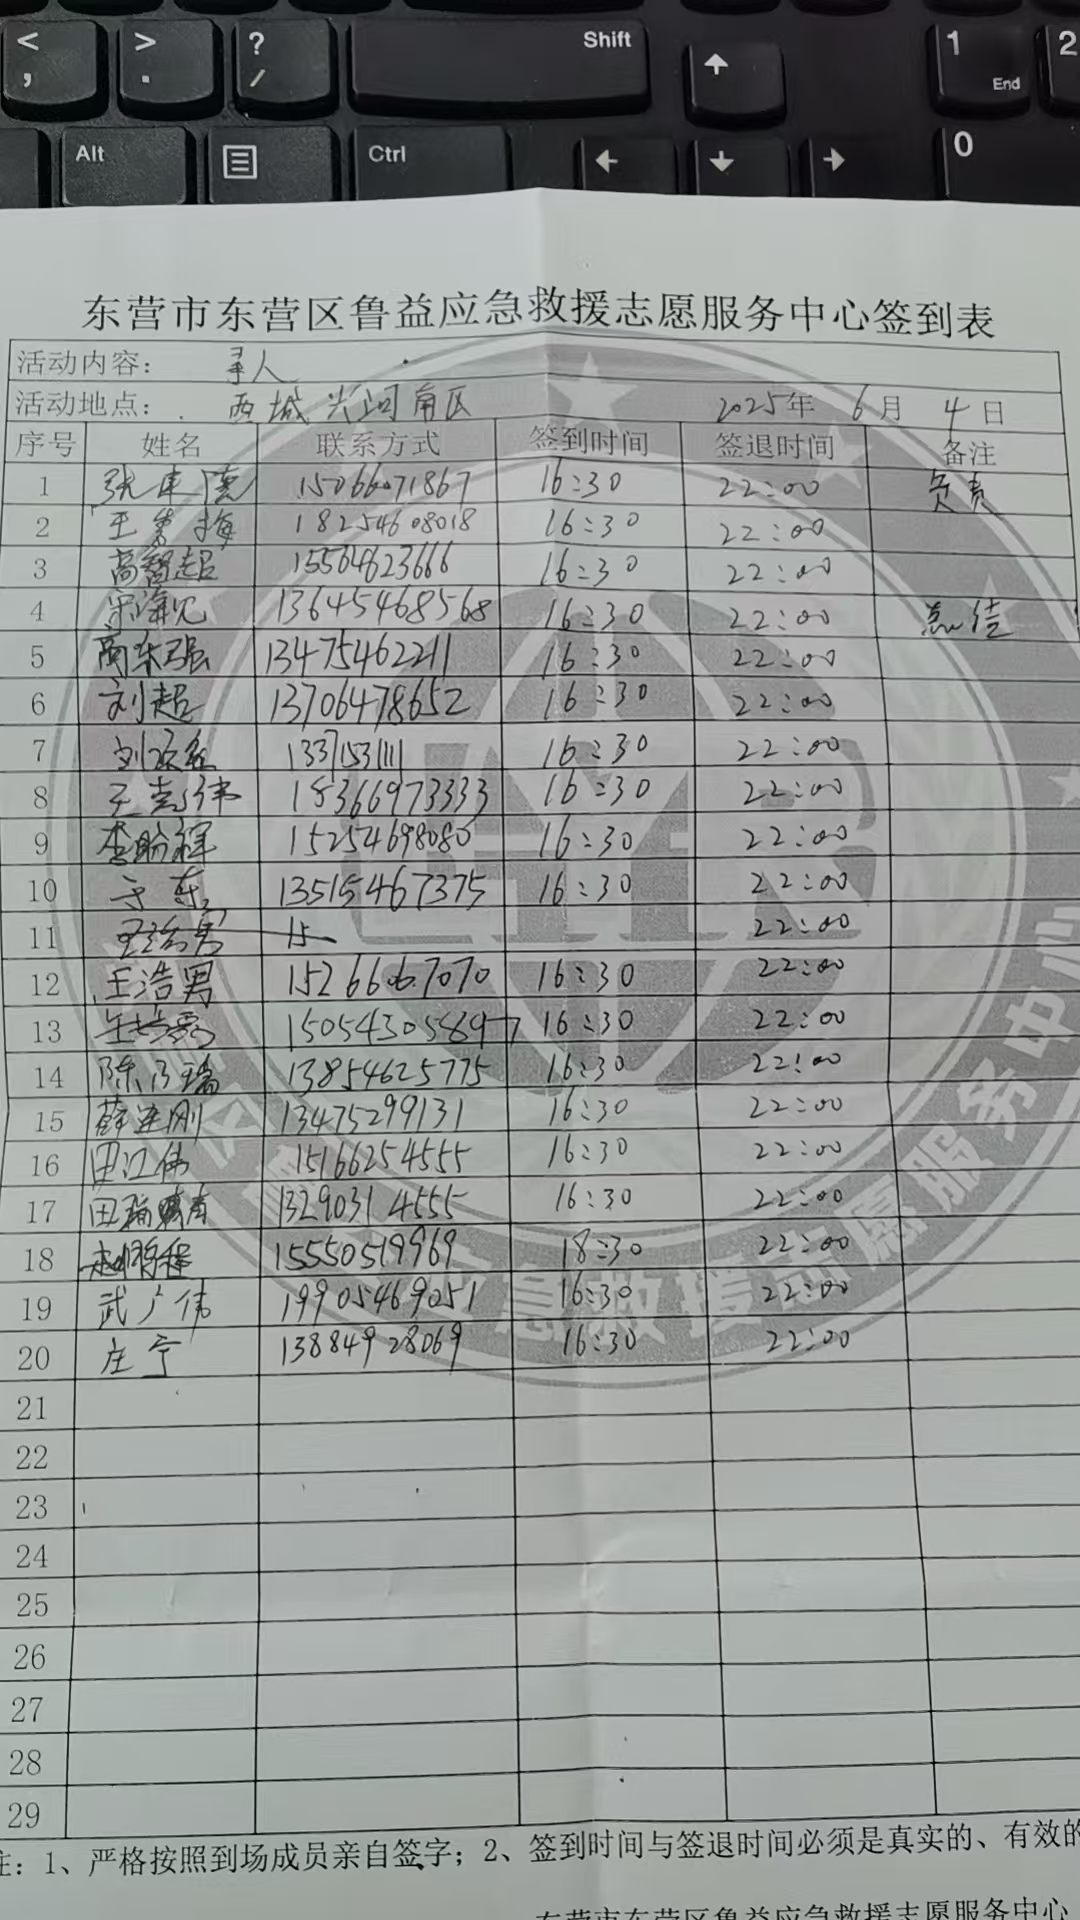 <
,
>
.
?
/
Shift
1
End
2
Alt
Ctrl
0
东营市东营区鲁益应急救援志愿服务中心签到表
活动内容: 寻人
活动地点: 西城兴河南区 2025年 6月 4日
序号 姓名 联系方式 签到时间 签退时间 备注
1 15066071867 16:30 22:00 负责
2 18254608018 16:30 22:00
3 高智超 15564623666 16:30 22:00
4 13645468568 16:30 22:00
5 13475462211 16:30 22:00
6 刘超 13706478652 16:30 22:00
7 13371531111 16:30 22:00
8 18366973333 16:30 22:00
9 李盼辉 15254698080 16:30 22:00
10 于东 13515467375 16:30 22:00
11 15 22:00
12 王浩男 16:30 22:00
13 16:30 22:00
14 陈乃瑞 13854625775 16:30 22:00
15 薛连刚 13475299131 16:30 22:00
16 田江伟 15166254555 16:30 22:00
17 13290314555 16:30 22:00
18 15550519969 18:30 22:00
19 武广伟 19905469051 16:30 22:00
20 庄宁 13884928069 16:30 22:00
21
22
23
24
25
26
27
28
29
注: 1、严格按照到场成员亲自签字; 2、签到时间与签退时间必须是真实的、有效的
东营市东营区鲁益应急救援志愿服务中心
应急救援志愿服务中心